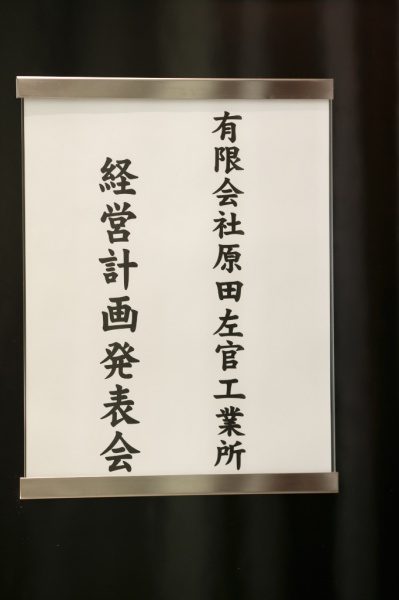 有限会社原田左官工業所
経営計画発表会